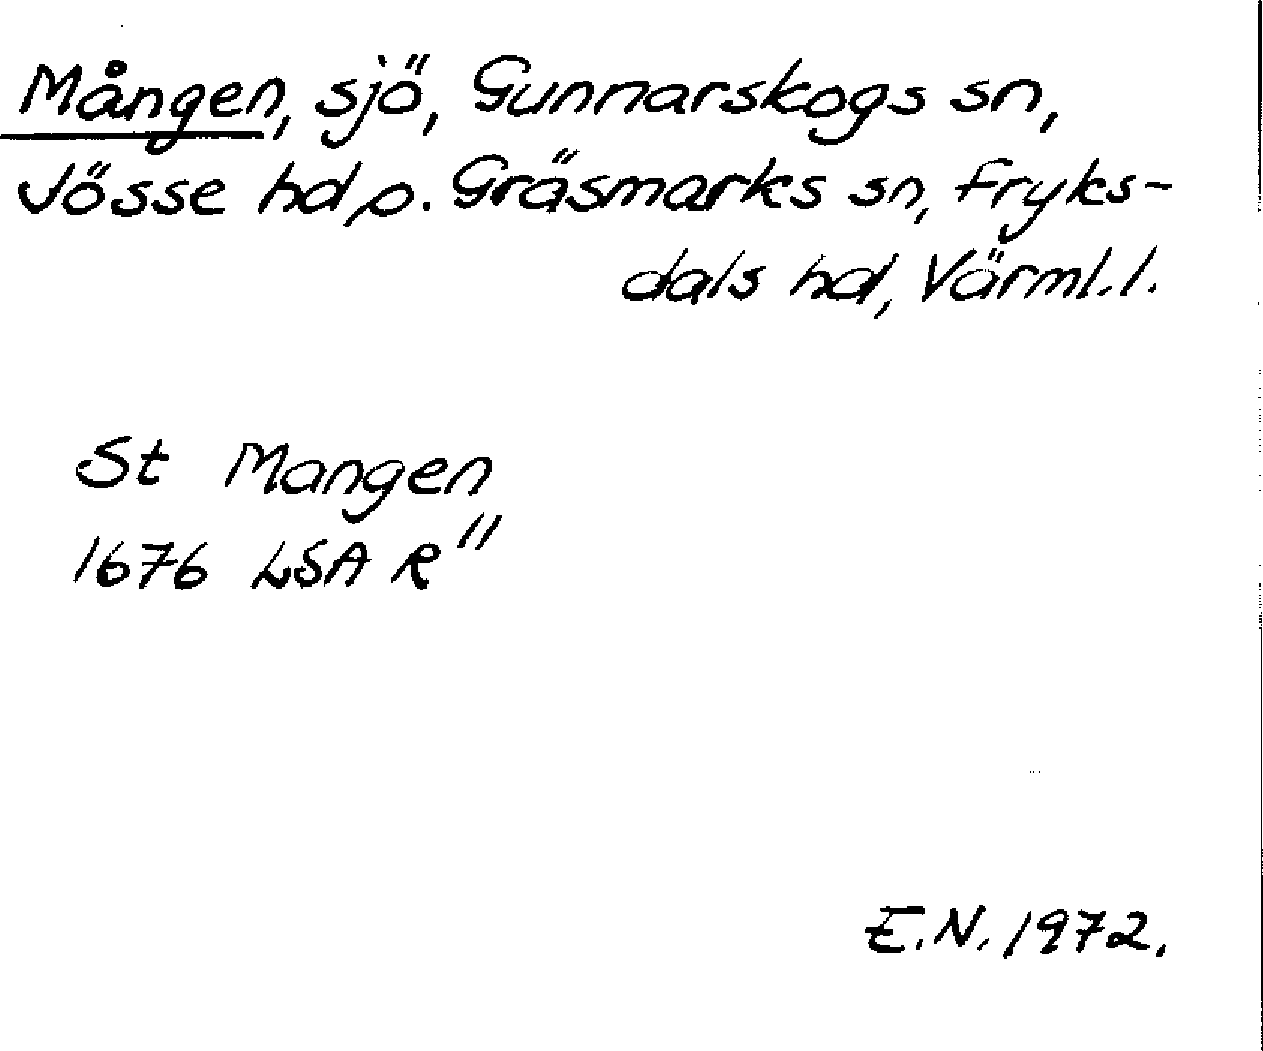 Mången, sjö, Gunnarskogs sn,
Jösse hd o. Gräsmarks sn, Fryks-
dals hd, Värml. l.
St Mangen
1676 LSA R"
E.N. 1972.